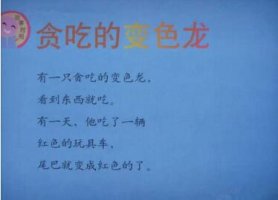 贪吃的变色龙
有一只贪吃的变色龙，
看到东西就吃。
有一天，他吃了一辆
红色的玩具车，
尾巴就变成红色的了。